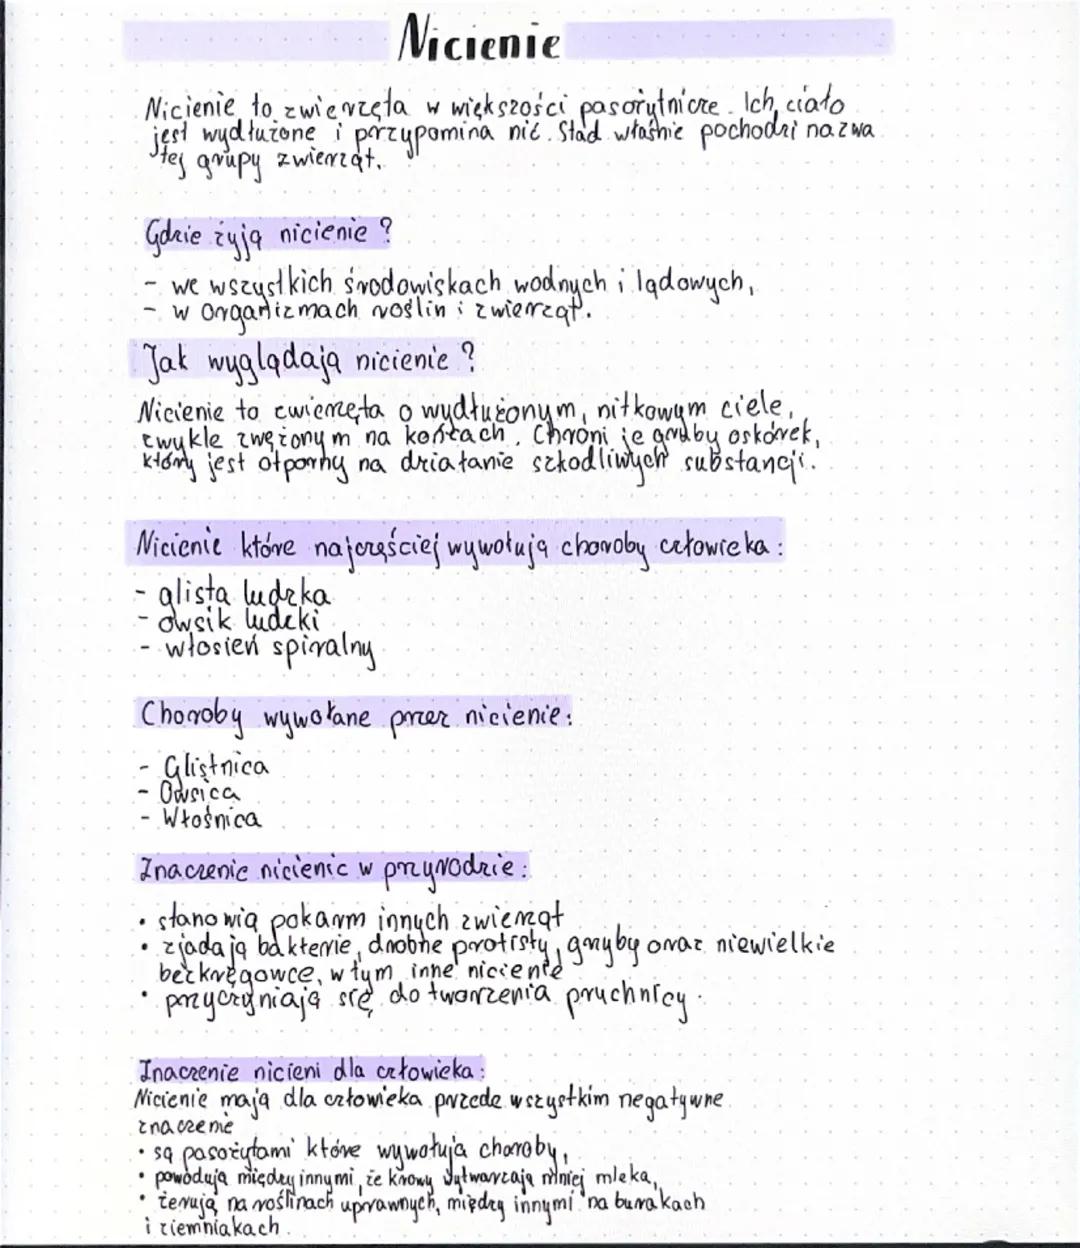 Nicienie
Nicienie to zwierzęta w większości pasożytnicze. Ich ciało
jest wydłużone i przypomina nić. Stąd właśnie pochodzi nazwa
tej grupy zwierząt.
Gdzie żyją nicienie?
- we wszystkich środowiskach wodnych i lądowych,
- w organizmach roślin i zwierząt.
Jak wyglądają nicienie?
Nicienie to zwierzęta o wydłużonym, nitkowym ciele,
zwykle zwężonym na końcach. Chroni je gruby oskórek,
który jest otporny na działanie szkodliwych substancji.
Nicienie które najczęściej wywołują choroby człowieka:
- glista ludzka
- owsik ludzki
- włosień spiralny
Choroby wywołane przez nicienie:
- Glistnica
- Owsica
- Włośnica
Znaczenie nicienic w przyrodzie:
• stanowią pokarm innych zwierząt
• zjadają bakterie, drobne protisty, grzyby oraz niewielkie
bezkręgowce, w tym inne nicienie
• przyczyniają się do tworzenia pruchnicy.
Znaczenie nicieni dla człowieka:
Nicienie mają dla człowieka przede wszystkim negatywne
znaczenie
• są pasożytami które wywołują choroby,
• powodują między innymi, że krowy wytwarzają mniej mleka,
• żerują na roślinach uprawnych, między innymi na burakach
i ziemniakach.